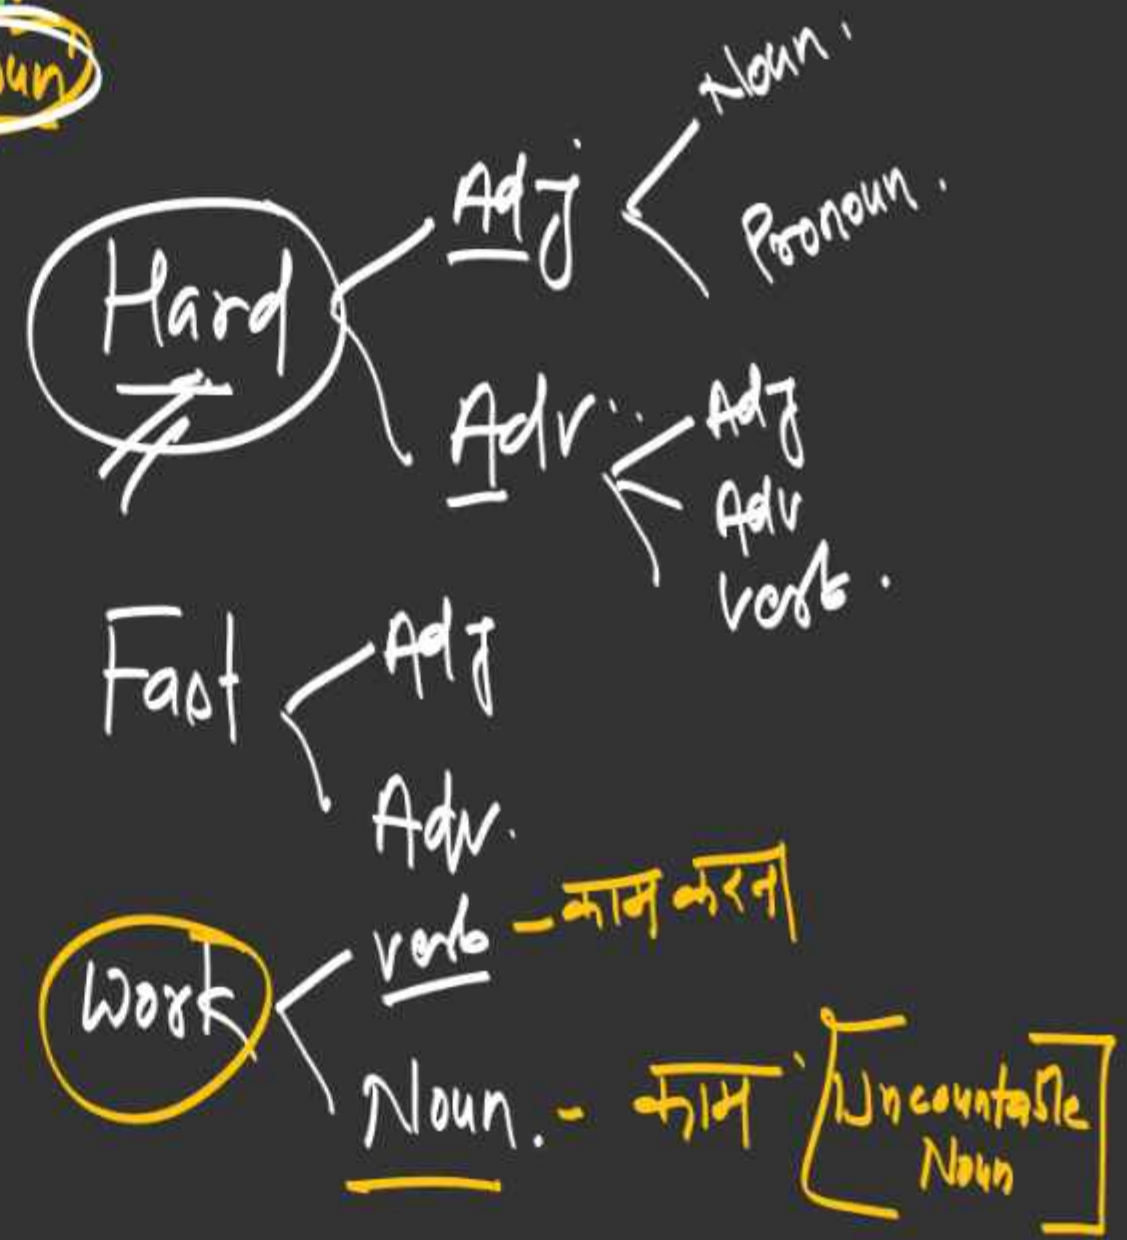 Noun.
Adj
Pronoun.
Hard
Adv..
Adj
Adv
verb.
Fast
Adj
Adv.
Work
verb - काम करना
Noun. - काम [Uncountable
Noun]